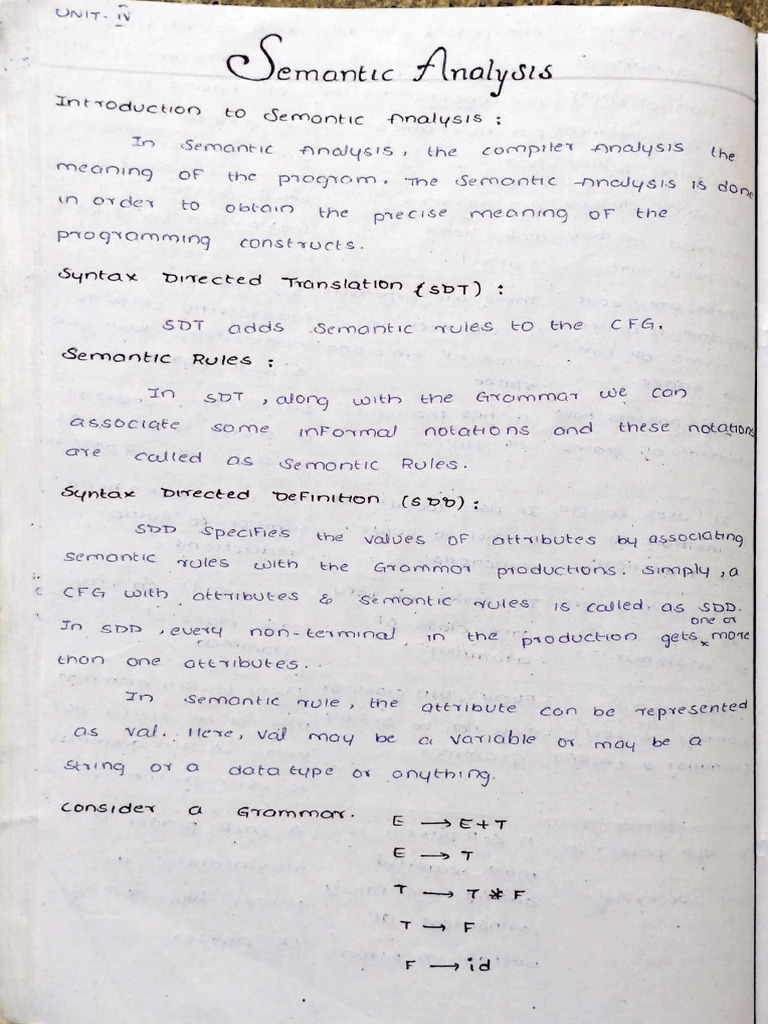 UNIT-IV
Semantic Analysis
Introduction to Semantic Analysis :
In Semantic Analysis, the compiler Analysis the
meaning of the program. The Semantic Analysis is done
in order to obtain the precise meaning of the
programming constructs.
Syntax Directed Translation (SDT) :
SDT adds semantic rules to the CFG.
Semantic Rules :
In SDT, along with the Grammar we can
associate some informal notations and these notations
are called as Semantic Rules.
Syntax Directed Definition (SDD) :
SDD specifies the values of attributes by associating
semantic rules with the Grammar productions. Simply, a
CFG with attributes & semantic rules is called as SDD.
one or
In SDD, every non-terminal in the production gets x more
than one attributes.
In semantic rule, the attribute can be represented
as val. Here, val may be a variable or may be a
string or a data type or anything.
Consider a Grammar.
E → E+T
E → T
T → T * F
T → F
F → id